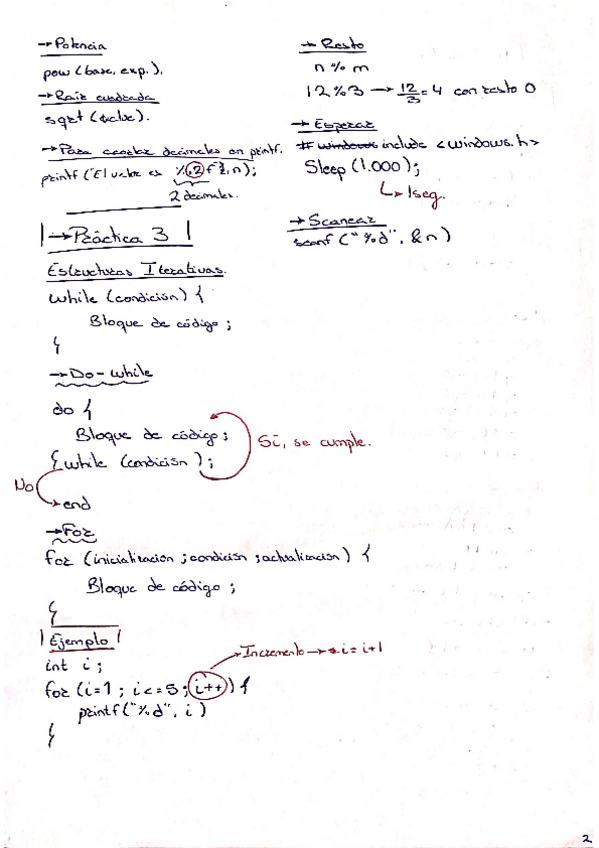 → Potencia
pow (base, exp.),
→ Raiz cuadrada
sqrt (valor).
→ Para acortar decimales en printf.
printf ("El valor es %.2f", n);
2 decimales.
→ Resto
n % m
12 % 3 → 12/3 = 4 con resto 0
→ Esperar
# windows include <windows.h>
Sleep (1.000);
↳ 1seg.
→ Scanear
scanf ("%d", &n)
→ Práctica 3
Estructuras Iterativas.
while (condición) {
Bloque de código ;
}
→ Do-while
do {
Bloque de código ;
} while (condición );
Si, se cumple.
No
→ end
→ For
for (inicialización ; condición ; actualización) {
Bloque de código ;
}
Ejemplo
int i ;
Incremento → i = i+1
for (i=1 ; i<=5 ; i++) {
printf ("%d", i)
}
2